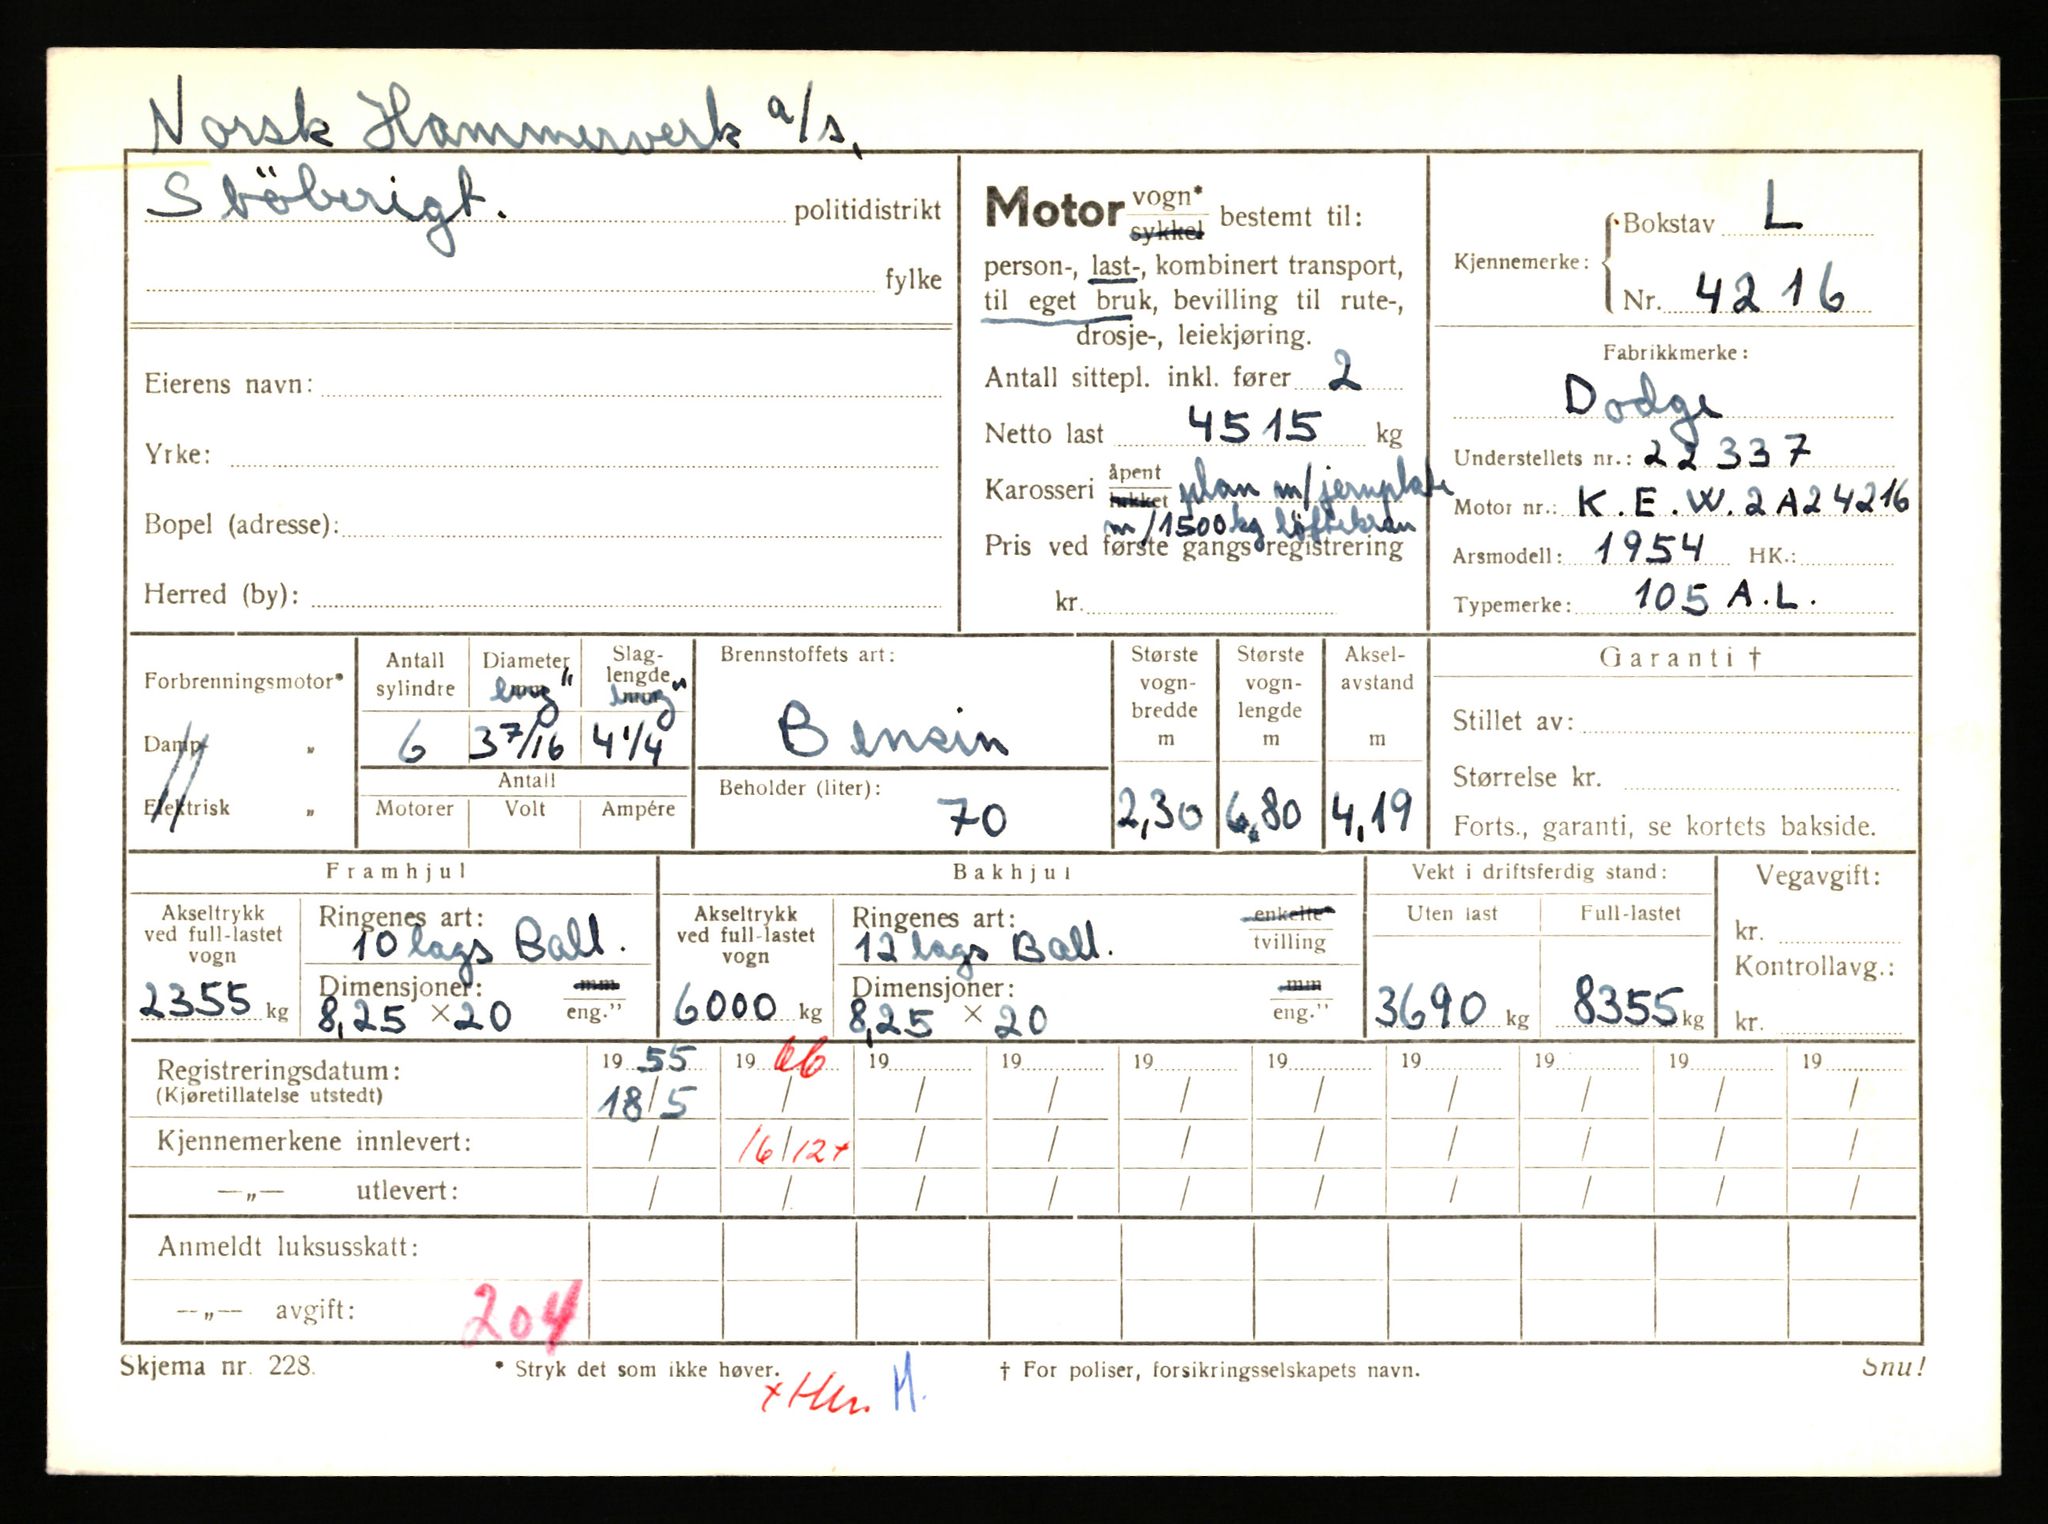 Norsk Hammerverk a/s,
Stöberigt. politidistrikt
fylke
Eierens navn:
Yrke:
Bopel (adresse):
Herred (by):
Motor vogn* sykkel bestemt til:
person-, last-, kombinert transport,
til eget bruk, bevilling til rute-,
drosje-, leiekjøring.
Antall sittepl. inkl. fører 2
Netto last 4515 kg
Karosseri åpent lukket plan m/jernplate
m/1500kg løftekran
Pris ved første gangs registrering
kr.
Kjennemerke: Bokstav L
Nr. 4216
Fabrikkmerke:
Dodge
Understellets nr.: 22337
Motor nr.: K.E.W.2A24216
Årsmodell: 1954 HK.:
Typemerke: 105 A.L.
Forbrenningsmotor*
Damp- „
Elektrisk „
Antall sylindre 6
Diameter mm eng" 3 7/16
Slaglengde mm eng" 4 1/4
Antall
Motorer Volt Ampére
Brennstoffets art:
Bensin
Beholder (liter):
70
Største vognbredde m 2,30
Største vognlengde m 6,80
Akselavstand m 4,19
Garanti †
Stillet av:
Størrelse kr.
Forts., garanti, se kortets bakside.
Framhjul
Akseltrykk ved full-lastet vogn 2355 kg
Ringenes art: 10 lags Ball.
Dimensjoner: mm eng." 8,25 × 20
Bakhjul
Akseltrykk ved full-lastet vogn 6000 kg
Ringenes art: enkelte* tvilling 12 lags Ball.
Dimensjoner: mm eng." 8,25 × 20
Vekt i driftsferdig stand:
Uten last Full-lastet
3690 kg 8355 kg
Vegavgift:
kr.
Kontrollavg.:
kr.
Registreringsdatum: 19 55 19 66 19 19 19 19 19 19 19 19
(Kjøretillatelse utstedt) 18/5 / / / / / / / / /
Kjennemerkene innlevert: / 16/12+ / / / / / / / /
—„— utlevert: / / / / / / / / / /
Anmeldt luksusskatt:
—„— avgift: 204
Skjema nr. 228. * Stryk det som ikke høver. † For poliser, forsikringsselskapets navn. Snu!